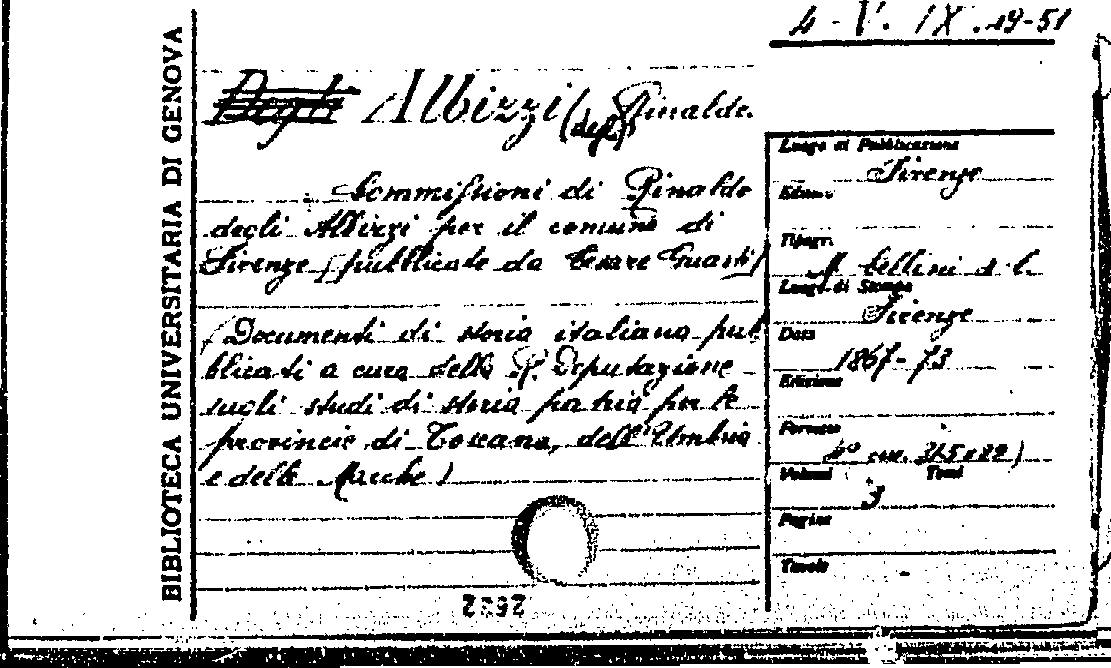 4 - V. IX. 49-51
BIBLIOTECA UNIVERSITARIA DI GENOVA
Degli Albizzi (degli) Rinaldo.
Commissioni di Rinaldo
degli Albizzi per il comune di
Firenze, pubblicate da Cesare Guasti
(Documenti di storia italiana pub
blicati a cura della R. Deputazione
sugli studi di storia patria per le
provincie di Toscana, dell'Umbria
e delle Marche)
Luogo di Pubblicazione
Firenze
Editore
Tipogr.
M. Cellini e C.
Luogo di Stampa
Firenze
Data
1867-73
Edizione
Formato
4º
Volumi Tomi
3
Pagine
Tavole